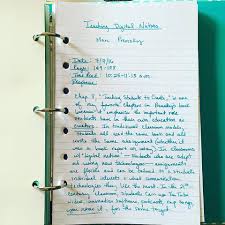 Teaching Digital Natives
Marc Prensky
Date: 7/7/16
Pages:
Time Read: 10:25-11:15 a.m.
Response:
Chap. 8, "Teaching Students to Create," is one
of my favorite chapters in Prensky's book
because it emphasizes the important role
students have in their own education as
creators. In traditional classroom models,
students all read the same book and all
write the same assignment (whether it
was a book report or essay). In classrooms
of "digital natives" - students who are adept
at using new technologies - assignments
are flexible and can be tailored to a student's
individual interests and what communication
technologies they like the most. In the 21st
century classroom, students can use YouTube
video, animation software, podcasts, rap songs,
you name it, for the same project